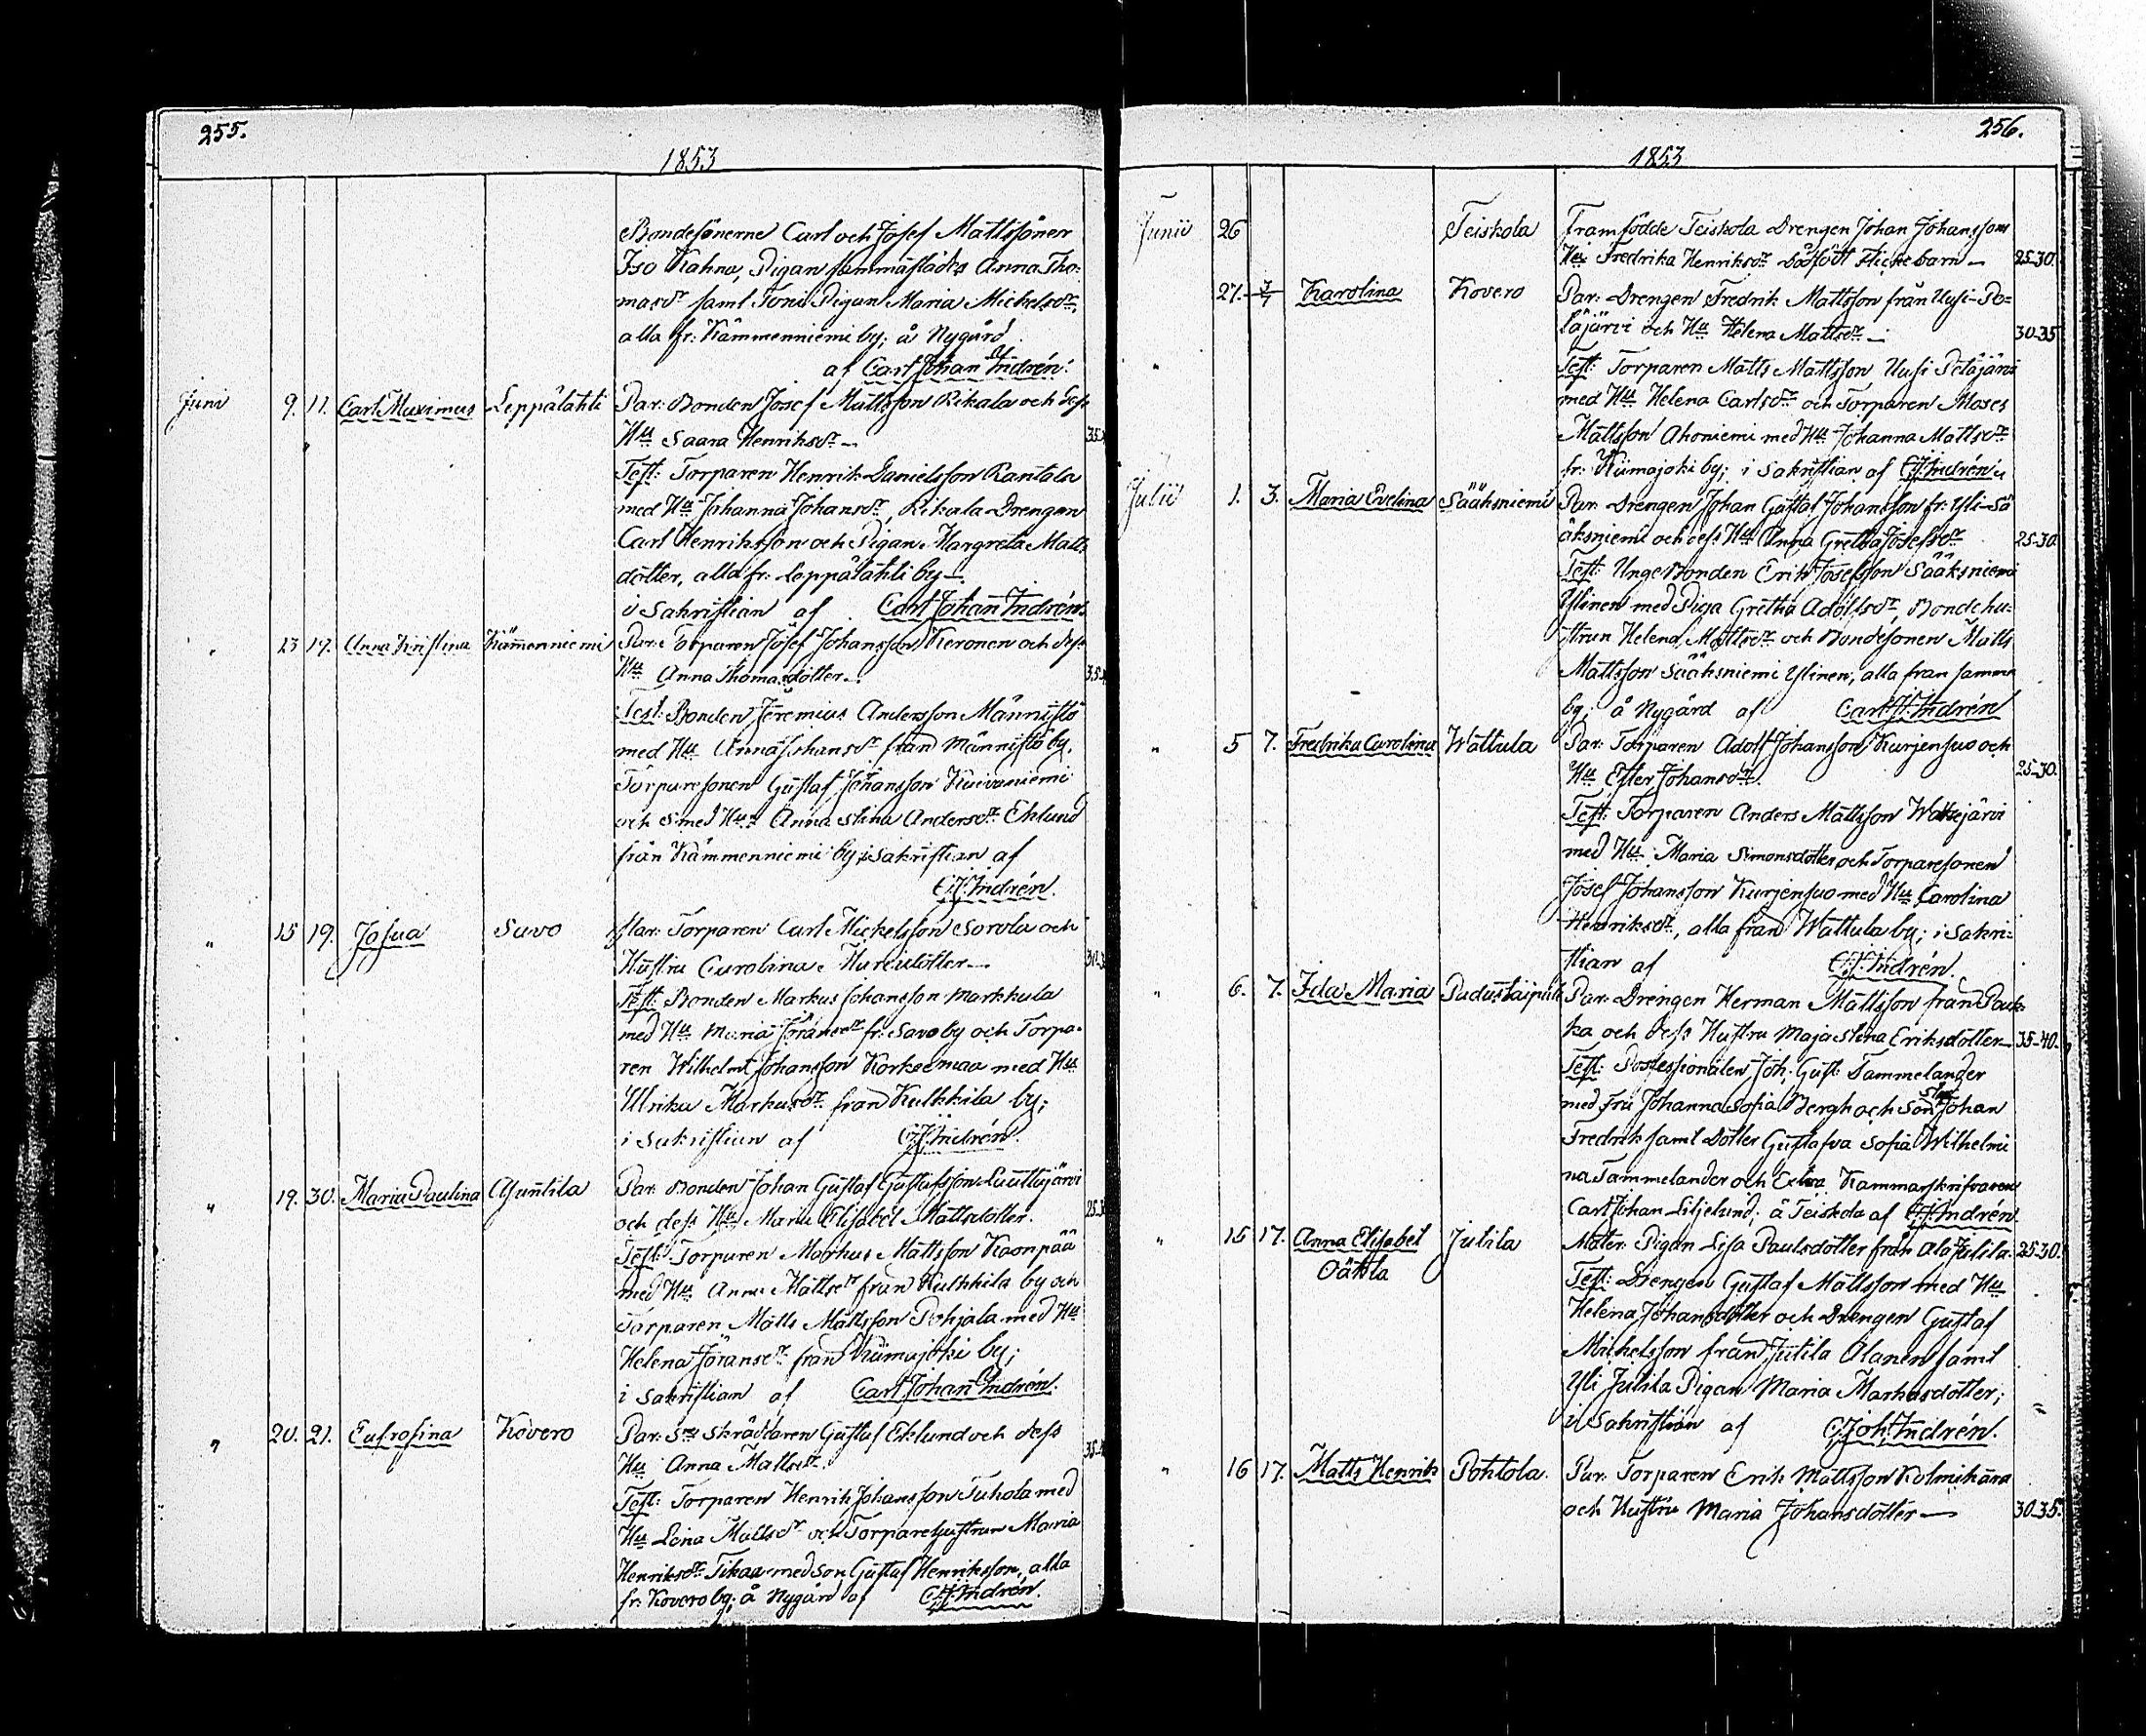 255.
1853
Bondesönerne Carl och Josef Mattssöner
Iso Kahna, Pigan sammastädes Anna Tho-
masdr samt Toni Pigan Maria Mickelsdr,
alla fr: Kämmenniemi by; å Nygård
af Carl Johan Indrén.
Juni 9. 11. Carl Maximus Leppälahti Par: Bonden Josef Mattsson Rikala och dess
Hu Saara Henriksdr— 35.
Test: Torparen Henrik Danielsson Rantala
med Hu Johanna Johansdr, Rikala Drengen
Carl Henriksson och Pigan Margreta Matts
dotter, alla fr: Leppälahti by—.
i Sakristian af Carl Johan Indrén
" 13 17. Anna Kristina Kämmenniemi Par: Torparen Josef Johansson Keronen och dess
Hu Anna Thomasdotter—. 35.
Test: Bonden Jeremias Andersson Männistö
med Hu Anna Johansdr från Männistö by.
Torparesonen Gustaf Johansson Kuivaniemi
och Smed Hu Anna Stina Andersdr Eklund
från Kämmenniemi by; i Sakristian af
C.J. Indrén.
" 15 19. Josua Savo Par: Torparen Carl Mickelsson Sorola och
Hustru Carolina 30.
Test: Bonden Markus Johansson Markkula
med Hu Maria Göransdr fr: Savo by och Torpa-
ren Wilhelm Johansson Korkeemaa med Hu
Ulrika Markusdr från Kulkkila by;
i Sakristian af C.J. Indrén.
" 19. 30. Maria Paulina Asuntila Par: Bonden Johan Gustaf Gustafsson Luuttujärvi
och dess Hu Maria Elisabet Mattsdotter. 25.
Test: Torparen Markus Mattsson Kaanpää
med Hu Anna Mattsdr från Kulkkila by och
Torparen Matts Mattsson Pohjala med Hu
Helena Göransdr från Kiimajoki by;
i Sakristian af Carl Johan Indrén.
" 20. 21. Eufrosina Kovero Par: Skräddaren Gustaf Eklund och dess
Hu Anna Mattsdr. 35.
Test: Torparen Henrik Johansson Tuhola med
Hu Lena Mattsdr och Torparehustrun Maria
Henriksdr Tikaa med son Gustaf Henriksson, alla
fr: Kovero by; å Nygård af C.J. Indrén.
256.
1853
Junii 26 Teiskola Framfödde Teiskola Drengen Johan Johanssons
Hu Fredrika Henriksdr dödfödt Flickebarn— 25-30.
27. 3/7 Karolina Kovero Par: Drengen Fredrik Mattsson från Uusi-Pe-
täjärvi och Hu Helena Mattsdr— 30-35
Test: Torparen Matts Mattsson Uusi Petäjärvi
med Hu Helena Carlsdr och Torparen Moses
Mattsson Ahoniemi med Hu Johanna Mattsdr
fr: Kiimajoki by; i Sakristian af C.J. Indrén
Julii 1. 3. Maria Evelina Sääksniemi Par: Drengen Johan Gustaf Johansson fr: Yli-Sä
äksniemi och dess Hu Anna Gretha Josefsdr 25-30
Test: Unge Bonden Erik Josefsson Sääksniemi
Ylinen med Piga Gretha Adolfsdr, Bondehu-
strun Helena Mattsdr och Bondesonen Matts
Mattsson Sääksniemi Ylinen, alla från samma
by; å Nygård af Carl J. Indrén
" 5 7. Fredrika Carolina Wattula Par: Torparen Adolf Johansson Kurjensuo och
Hu Ester Johansdr. 25-30.
Test: Torparen Anders Mattsson Wattejärvi
med Hu Maria Simonsdotter och Torparesonen
Josef Johansson Kurjensuo med Hu Carolina
Henriksdr, alla från Wattula by; i Sakri-
stian af C.J. Indrén.
" 6. 7. Ida Maria Paduslaipale Par: Drengen Herman Mattsson från
ka och dess Hustru Maja Stina Eriksdotter— 35-40.
Test: Possessionaten Joh: Gust: Tammelander
med Fru Johanna Sofia Bergh och Son Johan
Fredrik samt Dotter Gustafva Sofia Wilhelmi
na Tammelander och Extra Kammarskrifvaren
Carl Johan Liljelund; å Teiskola af C.J. Indrén
" 15 17. Anna Elisabet Jutila Mater: Pigan Lisa Paulsdotter från Ala Jutila. 25-30.
Oäkta Test: Drengen Gustaf Mattsson med Hu
Helena Johansdotter och Drengen Gustaf
Michelsson från Jutila Alanen samt
Yli Jutila Pigan Maria Markusdotter;
i Sakristian af C. Joh. Indrén.
" 16 17. Matts Henrik Pohtola. Par: Torparen Erik Mattsson Kolmikära
och Hustru Maria Johansdotter— 30-35.